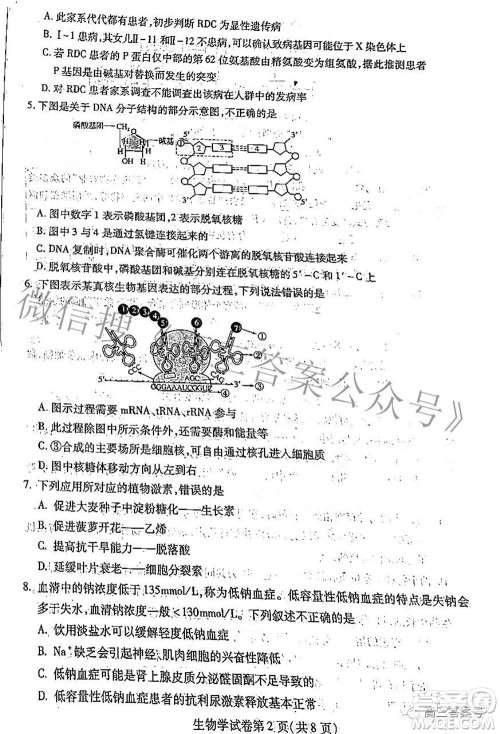 A. 此家系代代都有患者,初步判断 RDC 为显性遗传病
B. Ⅰ-1 患病,其女儿Ⅱ-11 和Ⅱ-12 不患病,可以确认致病基因可能位于 X 染色体上
C. 若 RDC 患者的 P 蛋白仅中部的第 62 位氨基酸由精氨酸变为组氨酸,据此推测患者
P 基因是由碱基对替换而发生的突变
D. 对 RDC 患者家系调查不能调查出该病在人群中的发病率
5. 下图是关于 DNA 分子结构的部分示意图,不正确的是
磷酸基团
CH₂
碱基
O
H
H
H
H
OH
H
5′
3′
1
2
3
4
3′
5′
A. 图中数字 1 表示磷酸基团,2 表示脱氧核糖
B. 图中 3 与 4 是通过氢键连接起来的
C. DNA 复制时, DNA 聚合酶可催化两个游离的脱氧核苷酸连接起来
D. 脱氧核苷酸中,磷酸基团和碱基分别连接在脱氧核糖的 5′-C 和 1′-C 上
6. 下图表示某真核生物基因表达的部分过程,下列说法错误的是
❶❷❸❹❺
❺
❻
❼
①
②
③
④
AGC
GGGAAAUCGGUC
5′
3′
A. 图示过程需要 mRNA、tRNA、rRNA 参与
B. 此过程除图中所示条件外,还需要酶和能量等
C. ③合成的主要场所是细胞核,可自由通过核孔进入细胞质
D. 图中核糖体移动方向从左到右
7. 下列应用所对应的植物激素,错误的是
A. 促进大麦种子中淀粉糖化——生长素
B. 促进菠萝开花——乙烯
C. 提高抗干旱能力——脱落酸
D. 延缓叶片衰老——细胞分裂素
8. 血清中的钠浓度低于 135mmol/L,称为低钠血症。低容量性低钠血症的特点是失钠会
多于失水,血清钠浓度一般<130mmol/L。下列叙述不正确的是
A. 饮用淡盐水可以缓解轻度低钠血症
B. Na⁺缺乏会引起神经、肌肉细胞的兴奋性降低
D. 低钠血症患者的抗利尿激素释放量基本正常
生物学试卷第 2 页(共 8 页)
微信搜
三答案公众号》
高三答案号